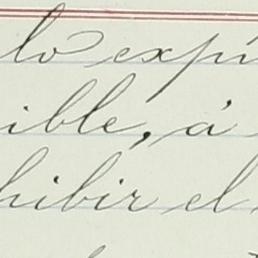 lo exp
ible, á
hibir el